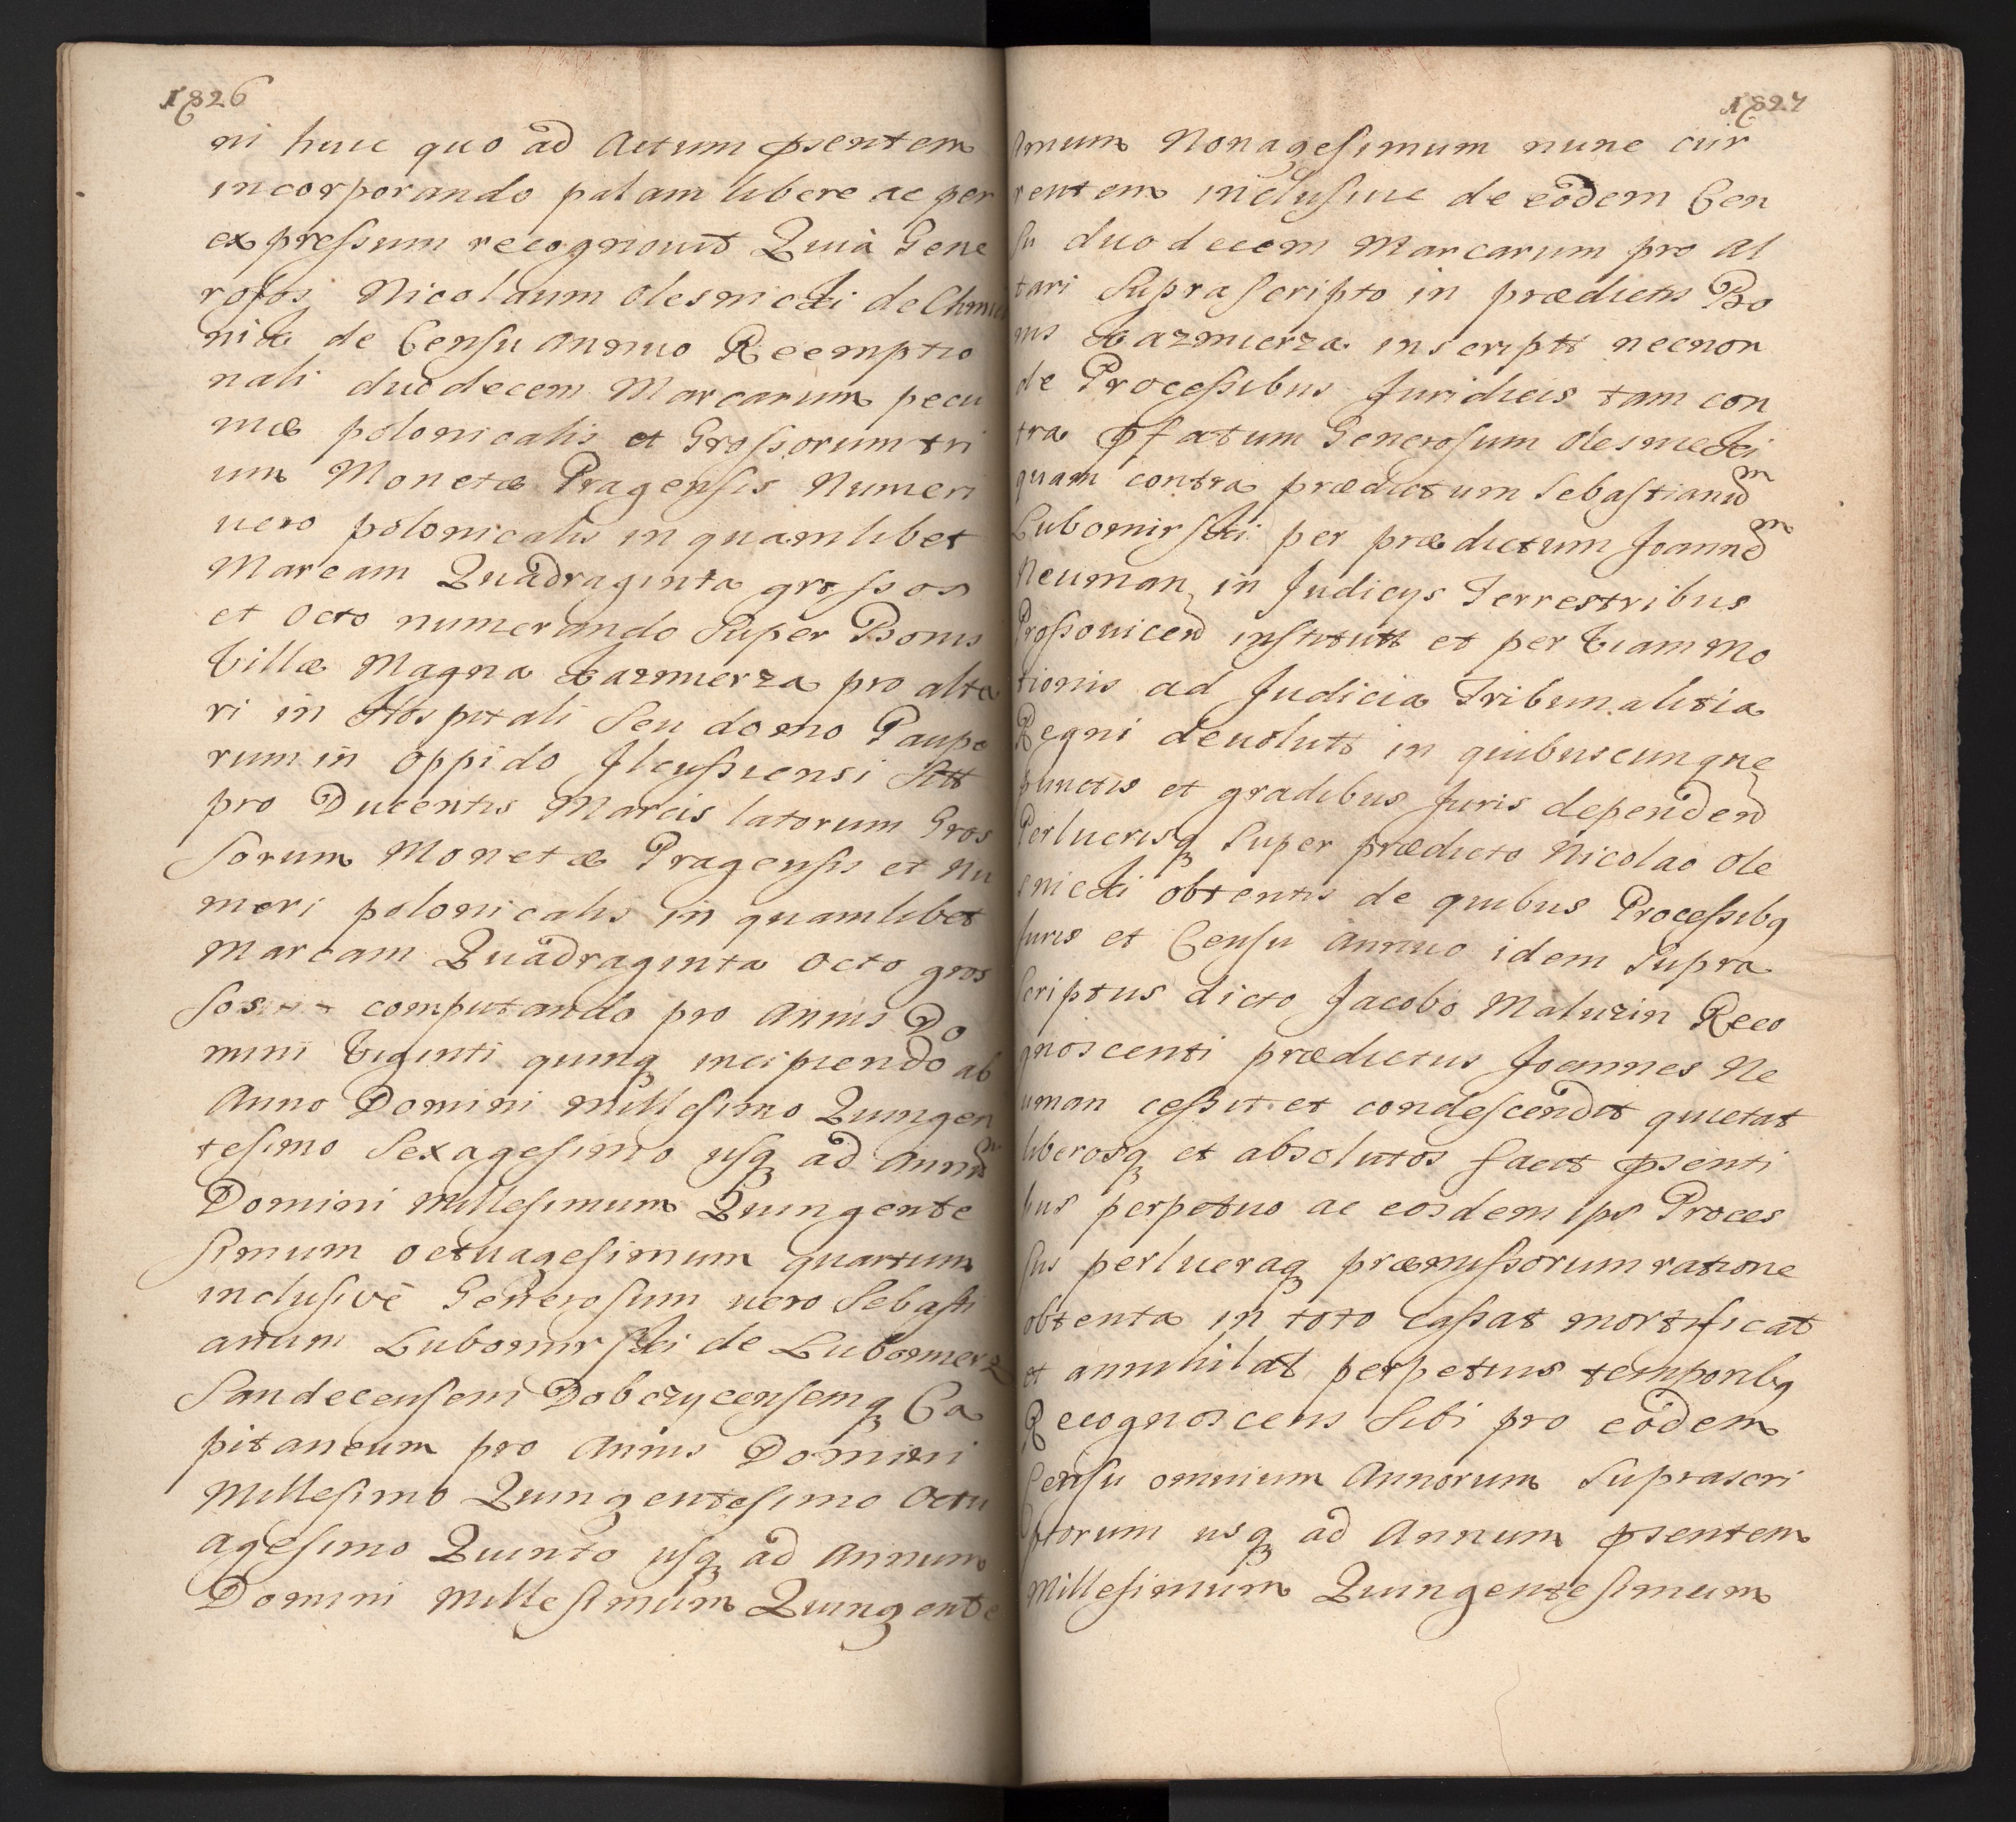 1826
ni huic quo ad Actum pnsentem
incorporando palam libere ac per
expressum recognouit Quia Gene
rosos Nicolaum Olesnicki de Chmie
nik de Censu Annuo Reemptio
nali duodecem Marcarum pecu
niæ polonicalis et Grossorum tri
um Monetæ Pragensis Numeri
uero polonicalis in quamlibet
Marcam Quadraginta grossos
et Octo numerando Super Bonis
Villæ Magna Kazmierza pro alta
ri in Hospitali Seu domo Paupe
rum in Oppido Ilcussiensi Sitt
pro Ducentis Marcis latorum Gros
sorum Monetæ Pragensis et Nu
meri polonicalis in quamlibet
Marcam Quadraginta Octo gros
sos computando pro Annis Do
mini Viginti quinq incipiendo ab
Anno Domini Millesimo Quingen
tesimo Sexagesimo usq ad Annum
Domini Millesimum Quingente
simum octuagesimum quartum
inclusivè Generosum uero Sebasti
anum Lubomirski de Lubomierz
Sandecensem Dobczycensemq Ca
pitaneum pro Annis Domini
Millesimo Quingentesimo Octu
agesimo Quinto usq ad Annum
Domini Millesimum Quingente
1827
simum Nonagesimum nunc cur
rentem inclusiue de eodem Cen
su duodecem Marcarum pro Al
tari Suprascripto in prædictis Bo
nis Kazmierza inscript necnon
de Processibus Juridicis tam con
tra pfatum Generosum Olesnicki
quam contra prædictum Sebastianum
Lubomirski per prædictum Joannem
Neuman in Judicys Terrestribus
Prossouicen institutt et per Viam Mo
tionis ad Judicia Tribunalitia
Regni deuolutt in quibuscunque
punctis et gradibus Juris dependen
Perlucrisq Super prædicto Nicolao Ole
snicki obtentis de quibus Processibq
Juris et Censu Annuo idem Supra
scriptus dicto Jacobo Maluzin Reco
gnoscenti prædictus Joannes Ne
uman cessit et condescendit quietat
liberosq et absolutos facit pnsenti
bus perpetuo ac eosdem ips Proces
sus perlucraq præmissorum ratione
obtenta in toto cassat mortificat
et annihilat perpetuis temporibq
Recognoscens Sibi pro eodem
Censu omnium Annorum Suprascri
ptorum usq ad Annum pnsentem
Millesimum Quingentesimum